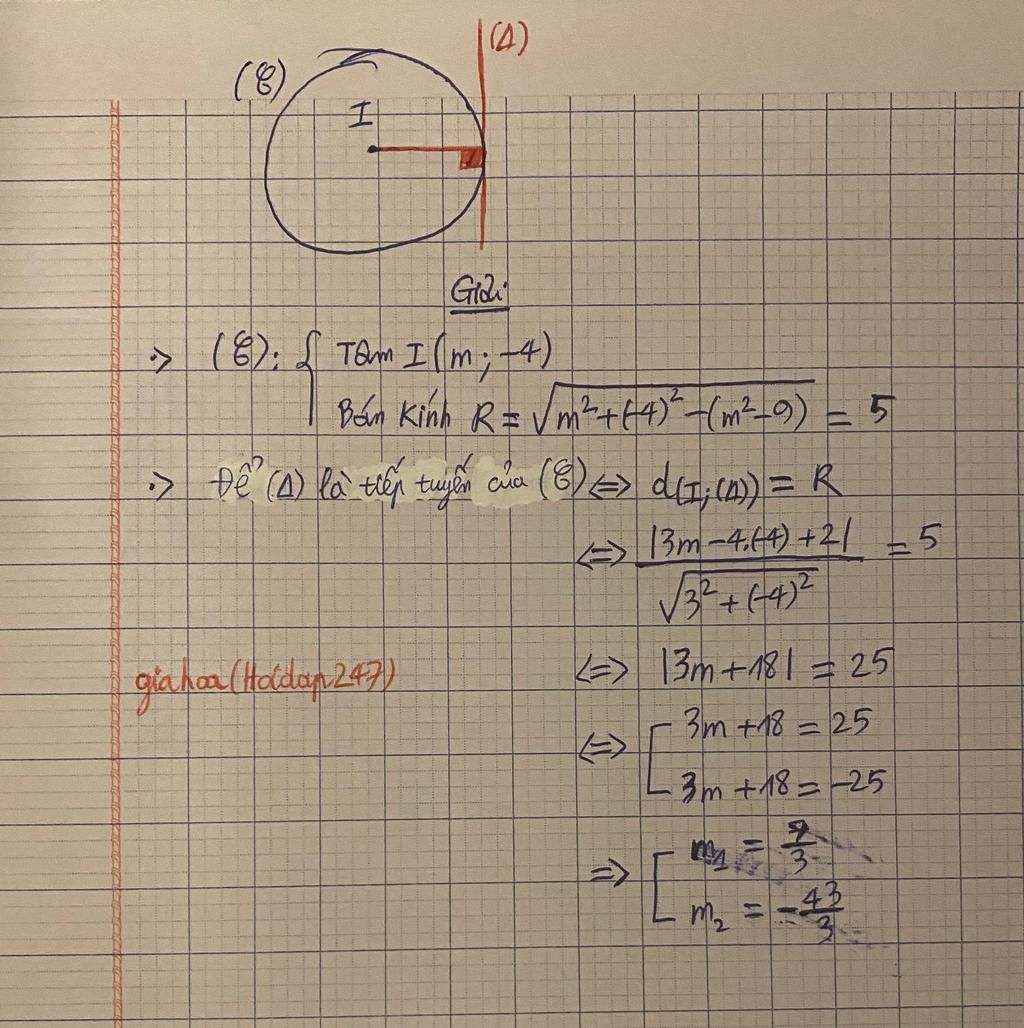 (C)
(Δ)
I
Giải
•> (C): { Tâm I(m; -4)
Bán kính R = √(m² + (-4)² - (m² - 9)) = 5
•> Để (Δ) là tiếp tuyến của (C) <=> d(I;(Δ)) = R
<=> |3m - 4.(-4) + 2| / √(3² + (-4)²) = 5
giahoa(Hoidap247)
<=> |3m + 18| = 25
<=> [ 3m + 18 = 25
3m + 18 = -25
=> [ m₁ = 7/3
m₂ = -43/3